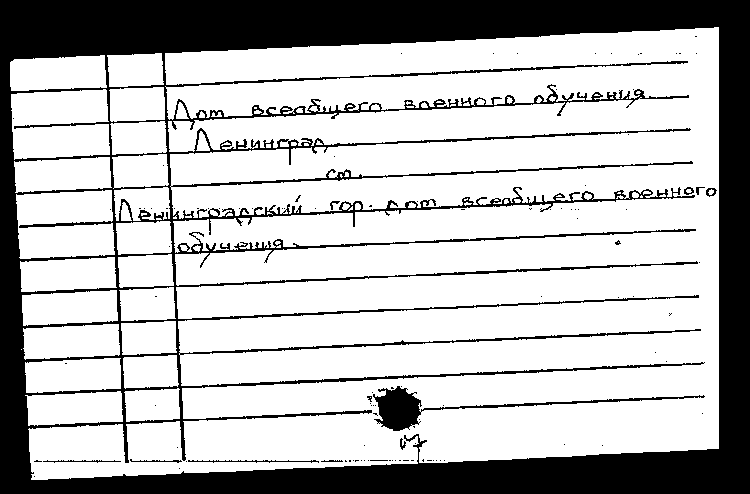 Дом всеобщего военного обучения.
Ленинград
см.
Ленинградский гор. дом всеобщего военного
обучения.